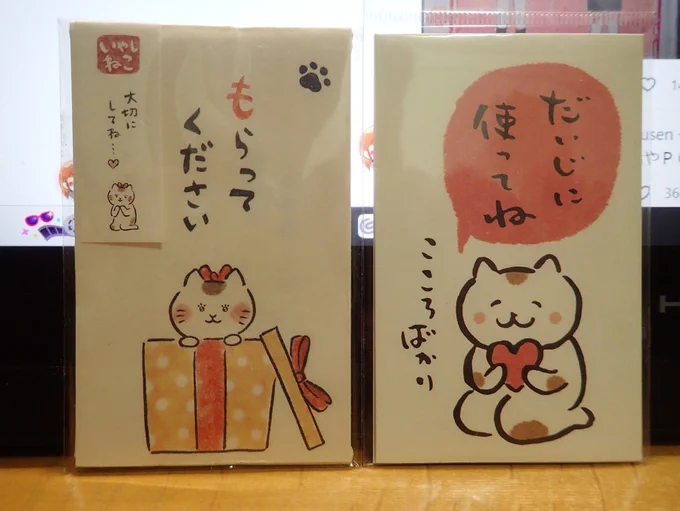 いやし
ねこ
大切に
してね…♡
もらって
ください
だいじに
使ってね
こころばかり
usen
やP
36